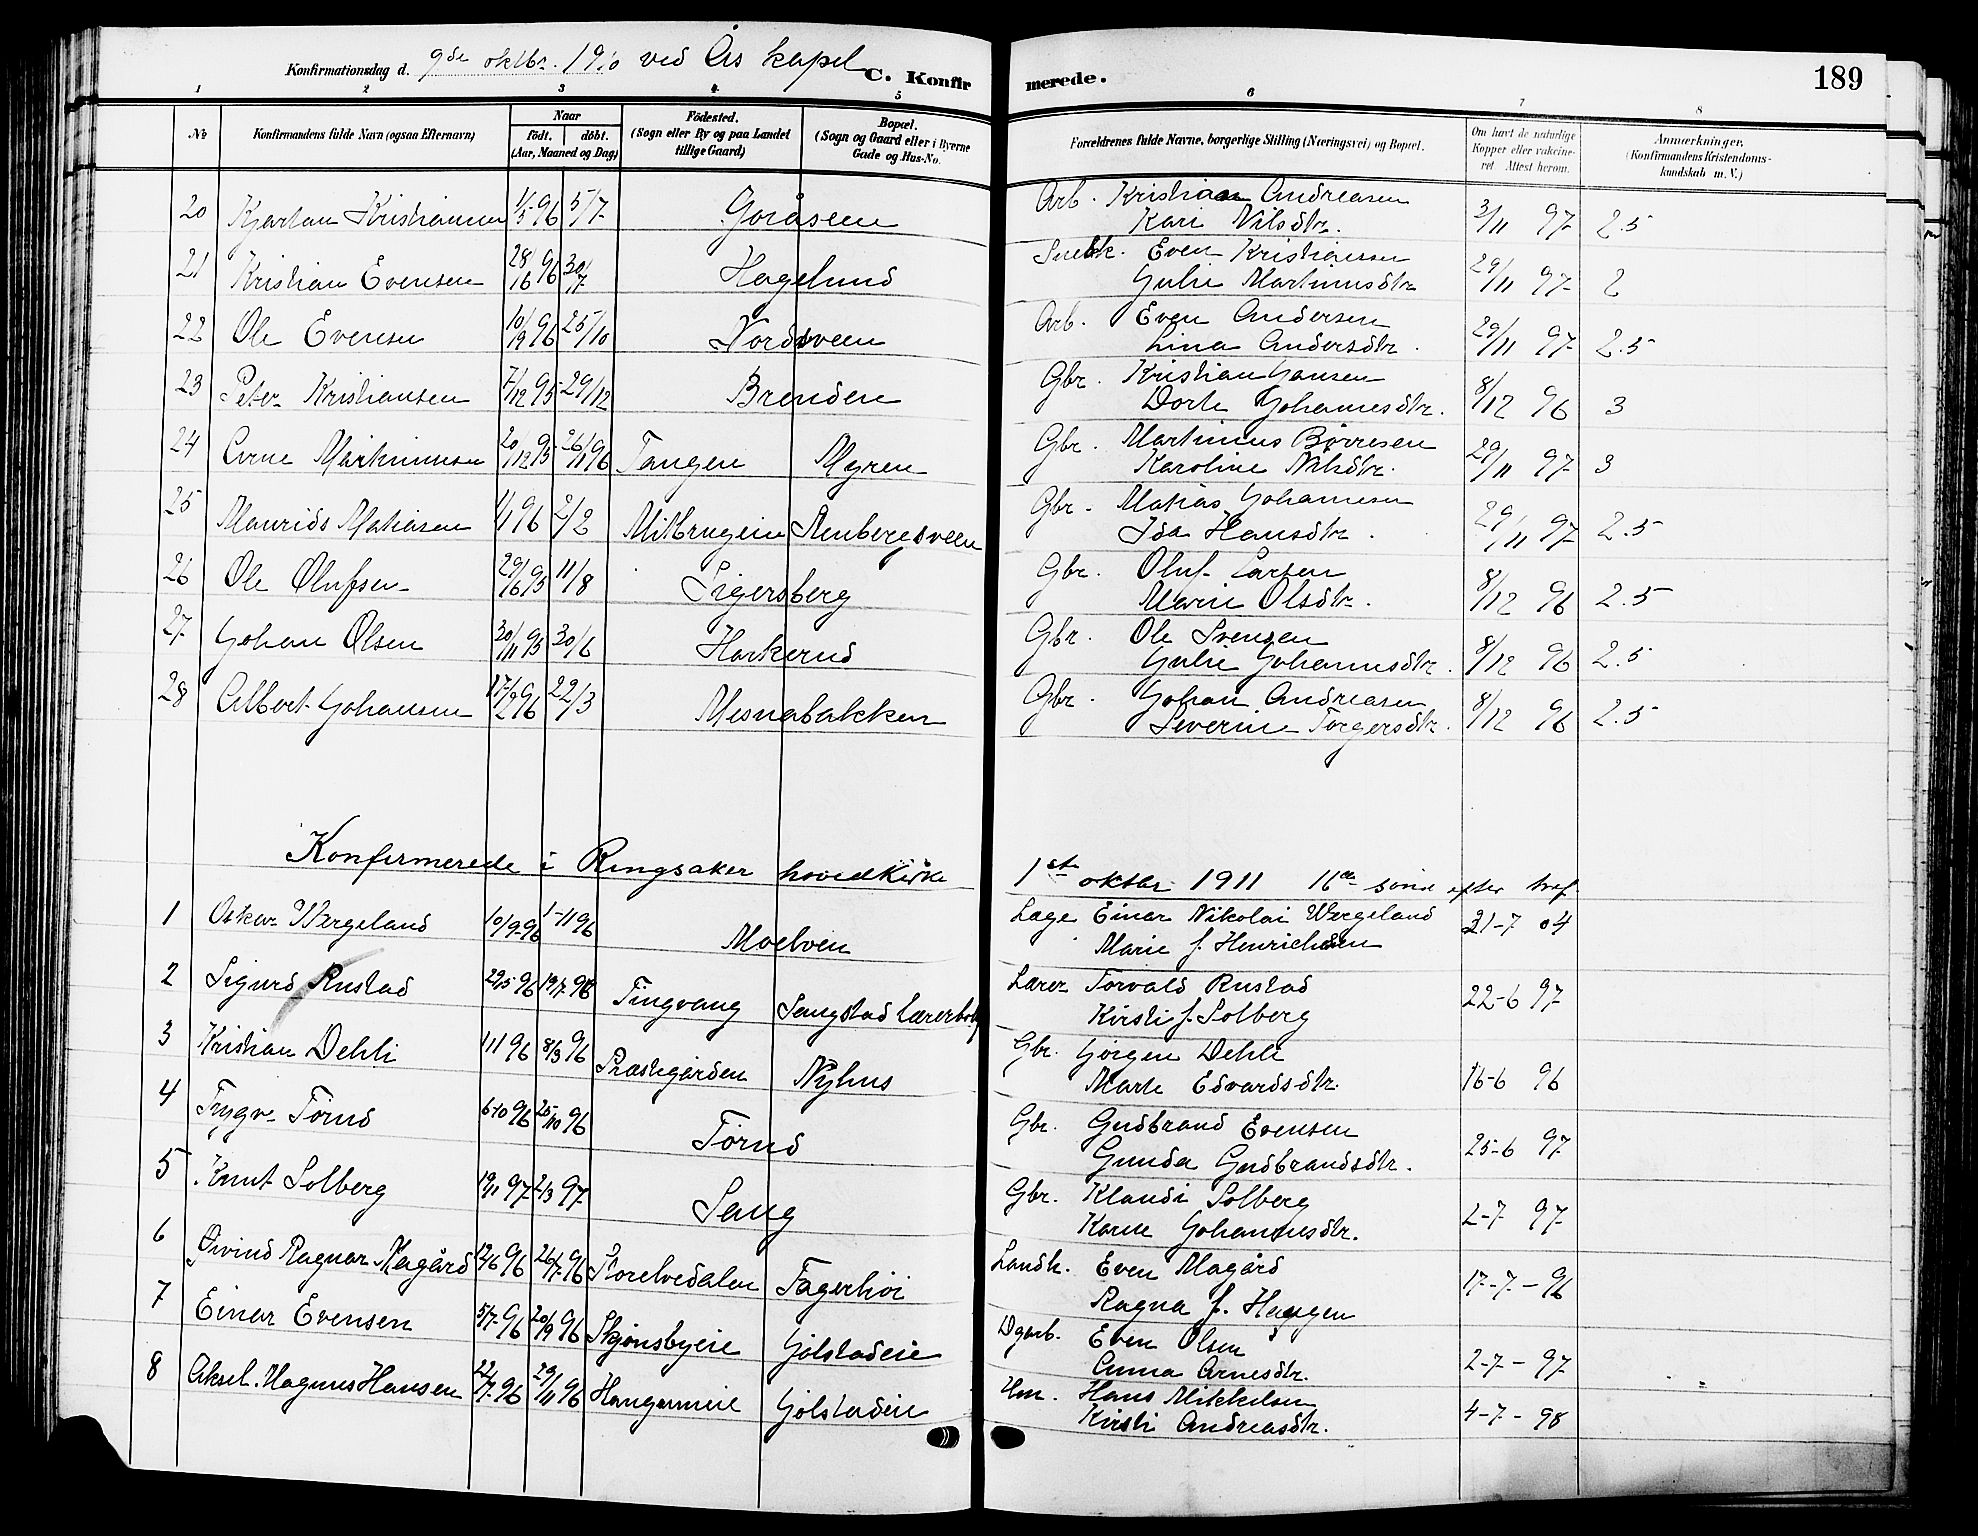 Konfirmationsdag d. 9de oktbr. 1910 ved Ås kapel C. Konfirmerede. 189
1 2 3 4 5 6 7 8
No Konfirmandens fulde Navn (ogsaa Efternavn) Naar født. døbt. (Aar, Maaned og Dag) Fødested. (Sogn eller By og paa Landet tillige Gaard) Bopæl. (Sogn og Gaard eller i Byerne Gade og Hus-No. Forældrenes fulde Navne, borgerlige Stilling (Næringsvei) og Bopæl. Om havt de naturlige Kopper eller vakcineret Attest herom. Anmærkninger. (Konfirmandens Kristendomskundskab m. V.)
20 Kjartan Kristiansen 1/5 96 5/7 Goråsen Arb. Kristian Andreasen 3/11 97 2.5
Kari Nilsdtr.
21 Kristian Evensen 28/6 96 30/7 Hagelund Snekk. Even Kristiansen 29/11 97 2
Julie Martinusdtr
22 Ole Evensen 10/9 96 25/10 Nordsveen Arb. Even Andersen 29/11 97 2.5
Lina Andersdtr.
23 Peter Kristiansen 7/12 95 29/12 Brenden Gbr. Kristian Hansen 8/12 96 3
Dorte Johannesdtr.
24 Arne Martinussen 20/12 95 26/1 96 Tangen Myren Gbr. Martinus Børresen 29/11 97 3
Karoline Nilsdtr.
25 Maurids Matiasen 1/1 96 2/2 Mitbrugeie Stenbergsveen Gbr. Matias Johannesen 29/11 97 2.5
Ida Hansdtr.
26 Ole Olufsen 29/6 95 11/8 Sigersberg Gbr. Oluf Larsen 8/12 96 2.5
Marie Olsdtr.
27 Johan Olsen 30/11 95 30/6 Harkerud Gbr. Ole Svensen 8/12 96 2.5
Julie Johannesdtr.
28 Albert Johansen 17/2 96 22/3 Mesnabakken Gbr. Johan Andreasen 8/12 96 2.5
Severine Torgersdtr.
Konfirmerede i Ringsaker hovedkirke 1st oktbr 1911 16de sønd efter tref
1 Oskar Wergeland 10/9-96 1-11 96 Moelven Læge Einar Nikolai Wergeland 21-7 04
Marie f. Henrichsen
2 Sigurd Rustad 29/5 96 19/7 96 Tingvang Saugstad Lærerbolig Lærer Torvald Rustad 22-6 97
Kirsti f. Solberg
3 Kristian Dehli 1/1 96 8/3 96 Præstegården Nyhus Gbr. Jørgen Dehli 16-6 96
Marte Edvardsdtr.
4 Trygve Tørud 6-10 96 25/10 96 Tørud Gbr. Gudbrand Evensen 25-6 97
Gunda Gudbrandsdtr.
5 Knut Solberg 19/1 97 2/3 97 Saug Gbr. Klaudi Solberg 2-7 97
Karen Johannesdtr.
6 Øivind Ragnar Magård 12/6 96 26/7 96 Storelvedalen Fagerhøi Landh. Even Magård 17-7-96
Ragna f. Haugen
7 Einar Evensen 5/7-96 20/9 96 Skjønsbyeie Gjølstadeie Dgarb. Even Olsen 2-7-97
Anna Arnesdtr.
8 Aksel Magnus Hansen 22/7-96 29/11 96 Gjølstadeie Hm. Hans Mikkelsen 4-7-98
Kirsti Andreasdtr.